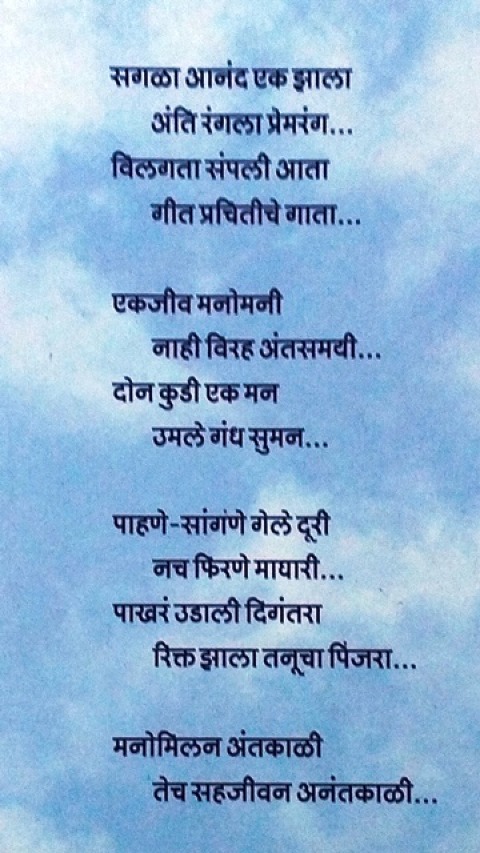 सगळा आनंद एक झाला
अंति रंगला प्रेमरंग...
विलगता संपली आता
गीत प्रचितीचे गाता...
एकजीव मनोमनी
नाही विरह अंतसमयी...
दोन कुडी एक मन
उमले गंध सुमन...
पाहणे-सांगणे गेले दूरी
नच फिरणे माघारी...
पाखरं उडाली दिगंतरा
रिक्त झाला तनूचा पिंजरा...
मनोमिलन अंतकाळी
तेच सहजीवन अनंतकाळी...